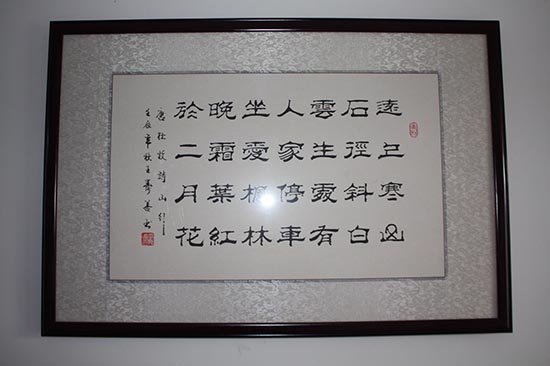 遠上寒山
石徑斜白
雲生處有
人家停車
坐愛楓林
晚霜葉紅
於二月花
唐杜牧詩山行
壬辰秋王壽书